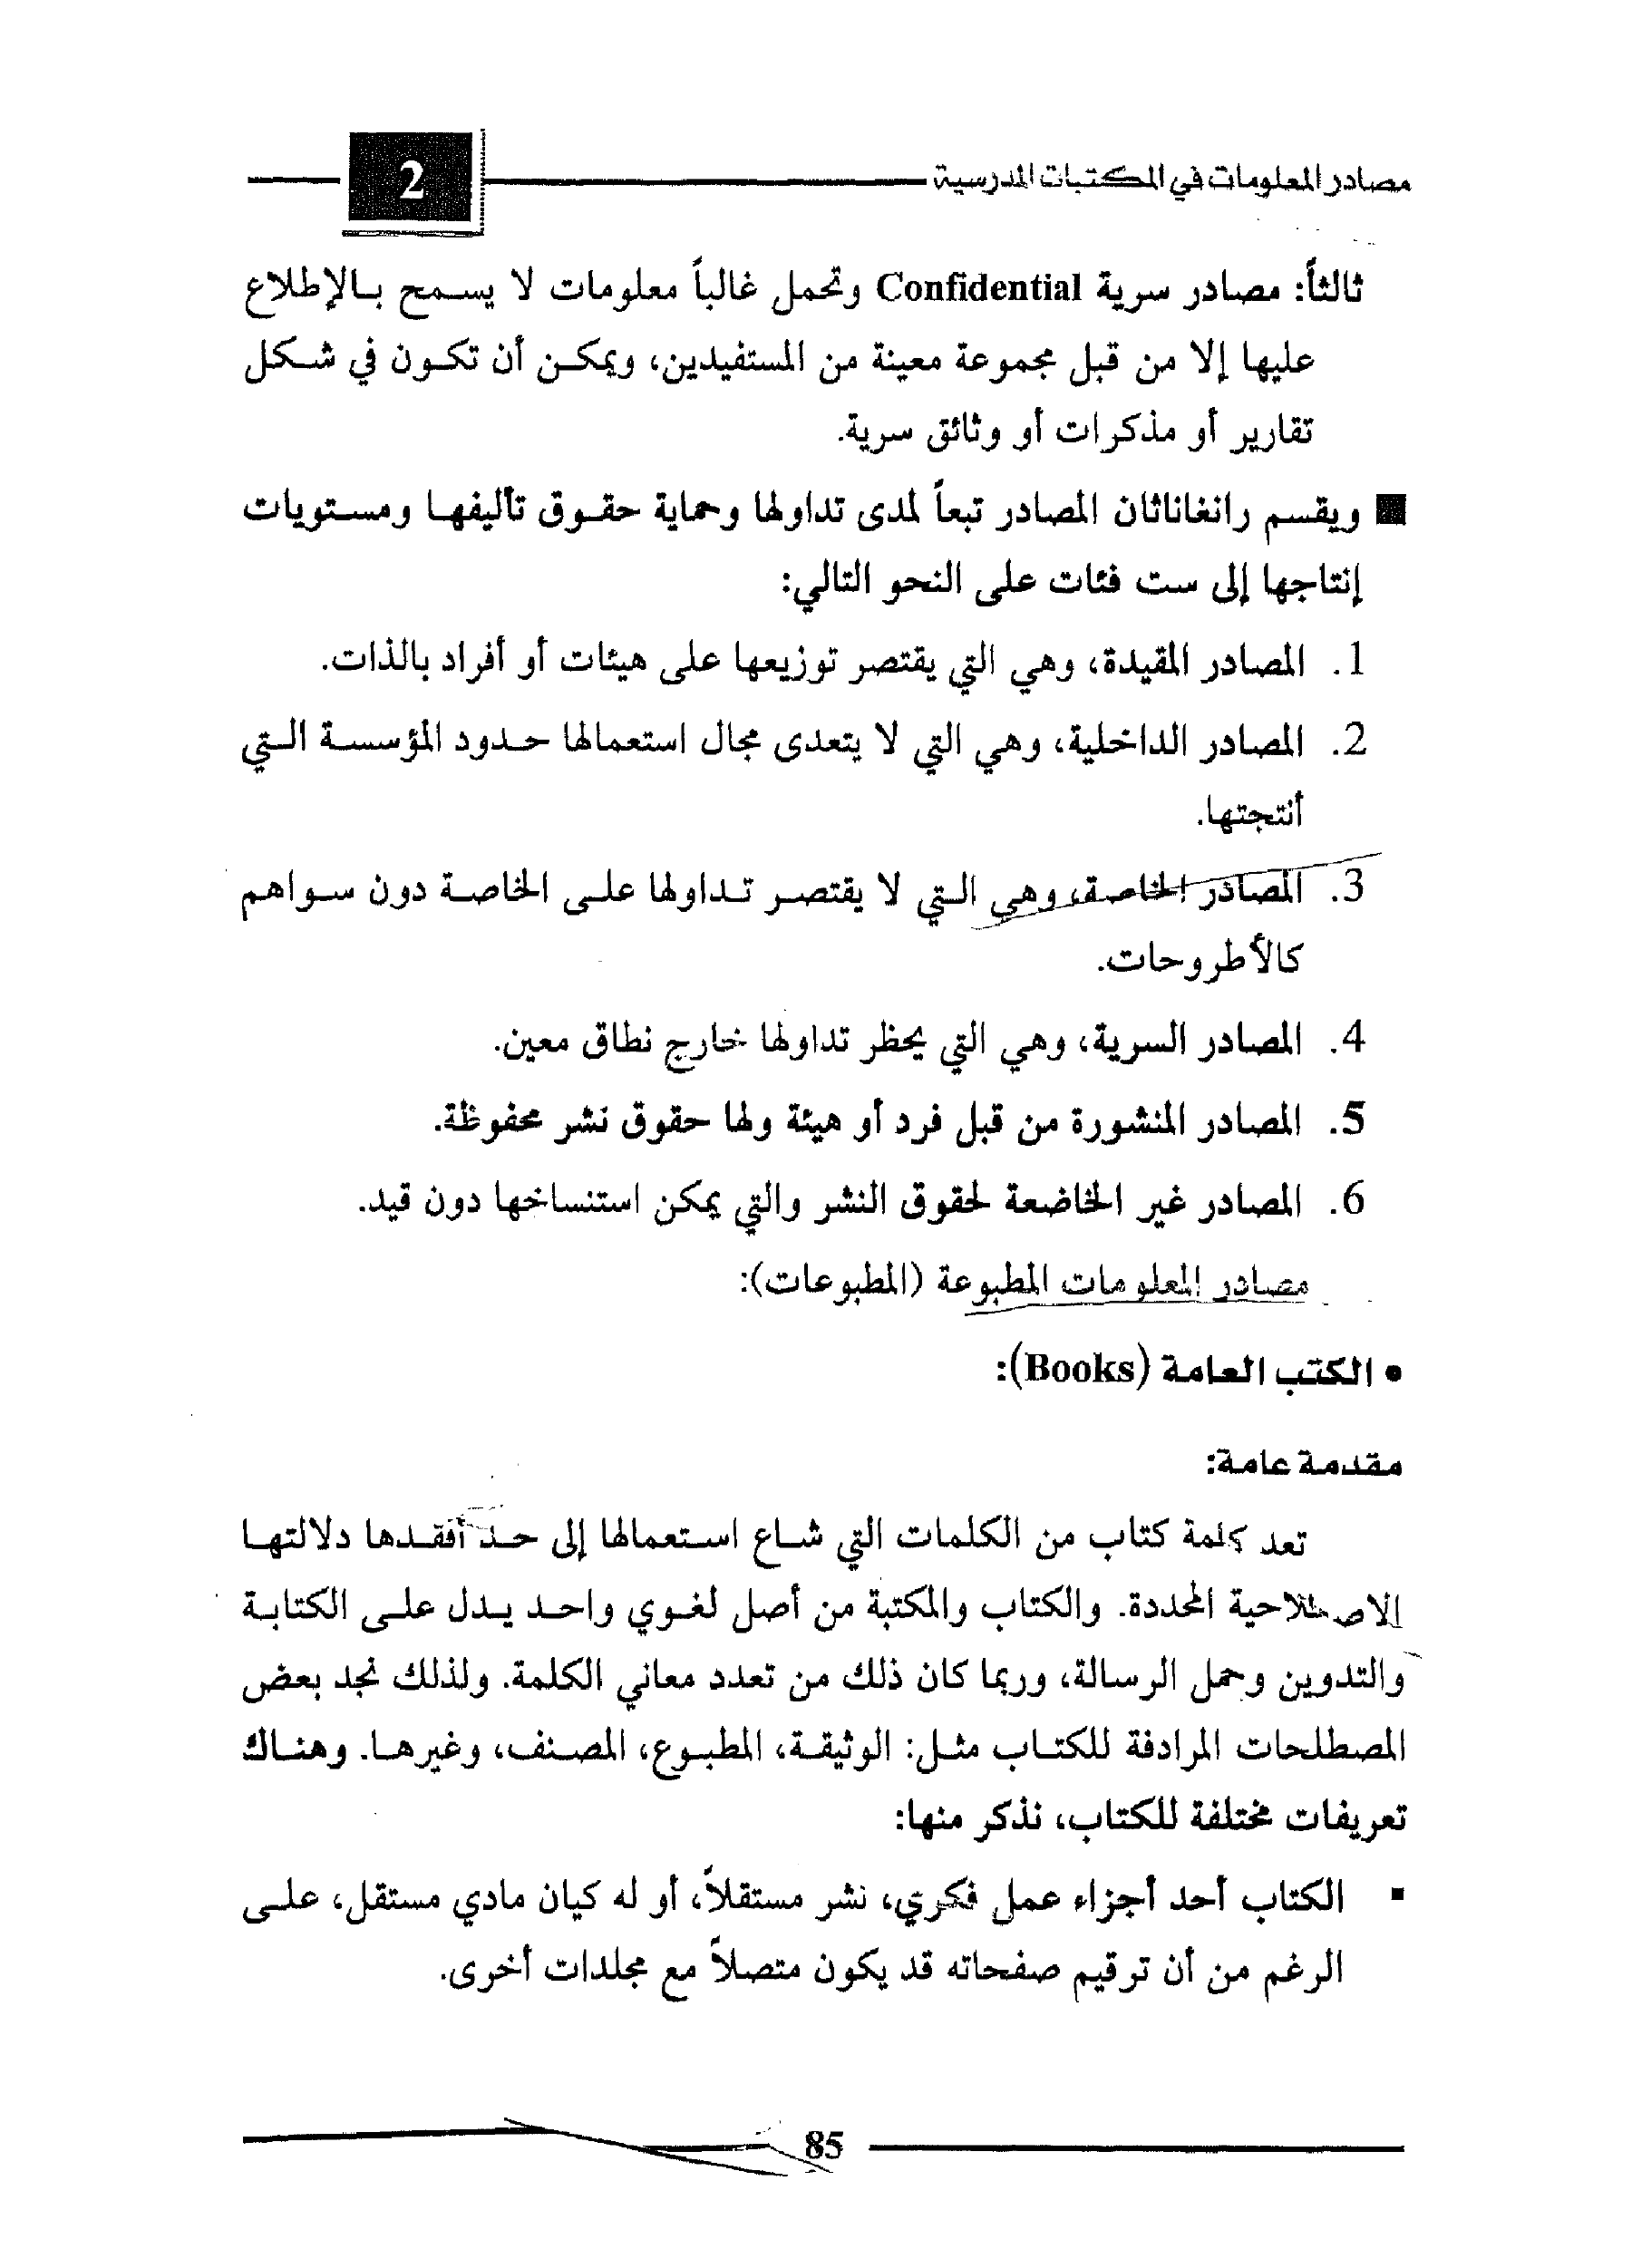 مصادر المعلومات في المكتبات المدرسية
2
ثالثاً: مصادر سرية Confidential وتحمل غالباً معلومات لا يسمح بالإطلاع
عليها إلا من قبل مجموعة معينة من المستفيدين، ويمكن أن تكون في شكل
تقارير أو مذكرات أو وثائق سرية.
■ ويقسم رانغاناثان المصادر تبعاً لمدى تداولها وحماية حقوق تأليفها ومستويات
إنتاجها إلى ست فئات على النحو التالي:
1. المصادر المقيدة، وهي التي يقتصر توزيعها على هيئات أو أفراد بالذات.
2. المصادر الداخلية، وهي التي لا يتعدى مجال استعمالها حدود المؤسسة التي
أنتجتها.
3. المصادر الخاصة، وهي التي لا يقتصر تداولها على الخاصة دون سواهم
كالأطروحات.
4. المصادر السرية، وهي التي يحظر تداولها خارج نطاق معين.
5. المصادر المنشورة من قبل فرد أو هيئة ولها حقوق نشر محفوظة.
6. المصادر غير الخاضعة لحقوق النشر والتي يمكن استنساخها دون قيد.
مصادر المعلومات المطبوعة (المطبوعات):
• الكتب العامة (Books):
مقدمة عامة:
تعد كلمة كتاب من الكلمات التي شاع استعمالها إلى حد أفقدها دلالتها
الاصطلاحية المحددة. والكتاب والمكتبة من أصل لغوي واحد يدل على الكتابة
والتدوين وحمل الرسالة، وربما كان ذلك من تعدد معاني الكلمة. ولذلك نجد بعض
المصطلحات المرادفة للكتاب مثل: الوثيقة، المطبوع، المصنف، وغيرها. وهناك
تعريفات مختلفة للكتاب، نذكر منها:
▪ الكتاب أحد أجزاء عمل فكري، نشر مستقلاً، أو له كيان مادي مستقل، على
الرغم من أن ترقيم صفحاته قد يكون متصلاً مع مجلدات أخرى.
85